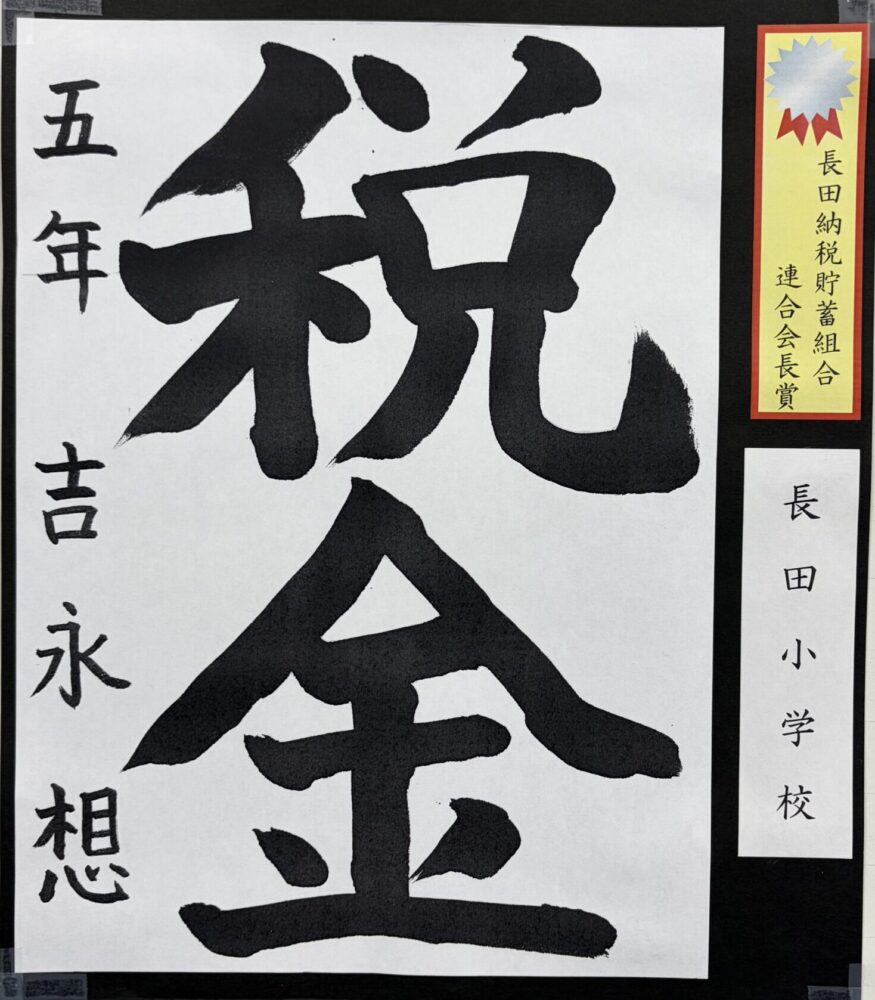 長田納税貯蓄組合
連合会長賞
長田小学校
税金
五年 吉永想